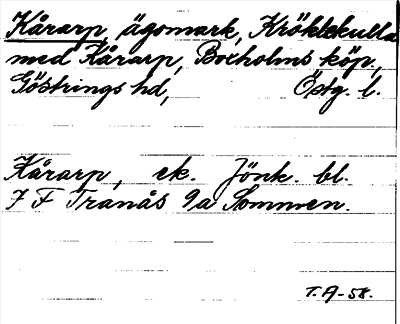 Kårarp, ägomark, Kröklekulla
med Kårarp, Boxholms köp.,
Göstrings hd, Östg. l.
Kårarp, ek. Jönk. bl.
7 F Tranås 9a Sommen.
T. A-58.